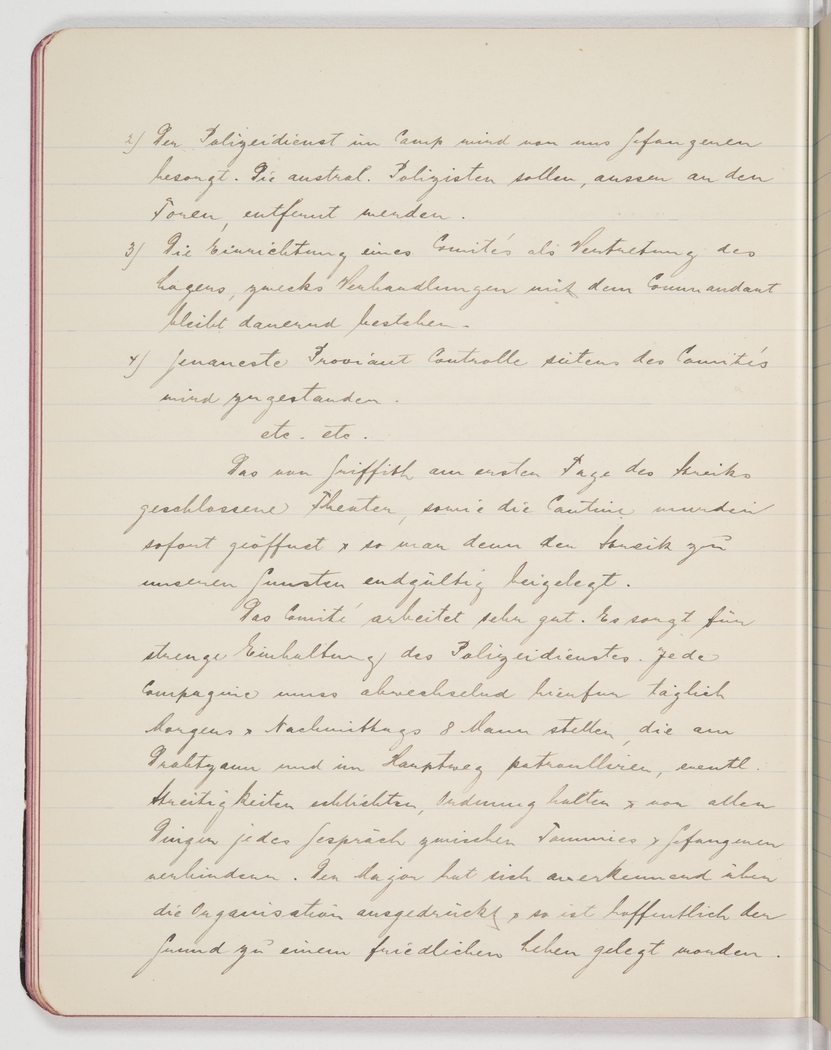 2) Der Polizeidienst im Camp wird von uns Gefangenen
besorgt. Die austral. Polizisten sollen, aussen an den
Toren, entfernt werden.
3) Die Einrichtung eines Comités als Vertretung des
Lagers, zwecks Verhandlungen mit dem Commandant
bleibt dauernd bestehen.
4) Genaueste Proviant Controlle seitens des Comités
wird zugestanden.
etc. etc.
Das von Griffith am ersten Tage des Streiks
geschlossene Theater, sowie die Cantine wurden
sofort geöffnet & so war denn der Streik zu
unseren Gunsten endgültig beigelegt.
Das Comité arbeitet sehr gut. Es sorgt für
strenge Einhaltung des Polizeidienstes. Jede
Compagnie muss abwechselnd hierfur täglich
Morgens & Nachmittags 8 Mann stellen, die am
Drahtzaun und im Hauptweg patroullieren, eventl.
Streitigkeiten schlichten, Ordnung halten & vor allen
Dingen jedes Gespräch zwischen Tommies & Gefangenen
verhindern. Der Major hat sich anerkennend über
die Organisation ausgedrückt & so ist hoffentlich der
Grund zu einem friedlichen Leben gelegt worden.